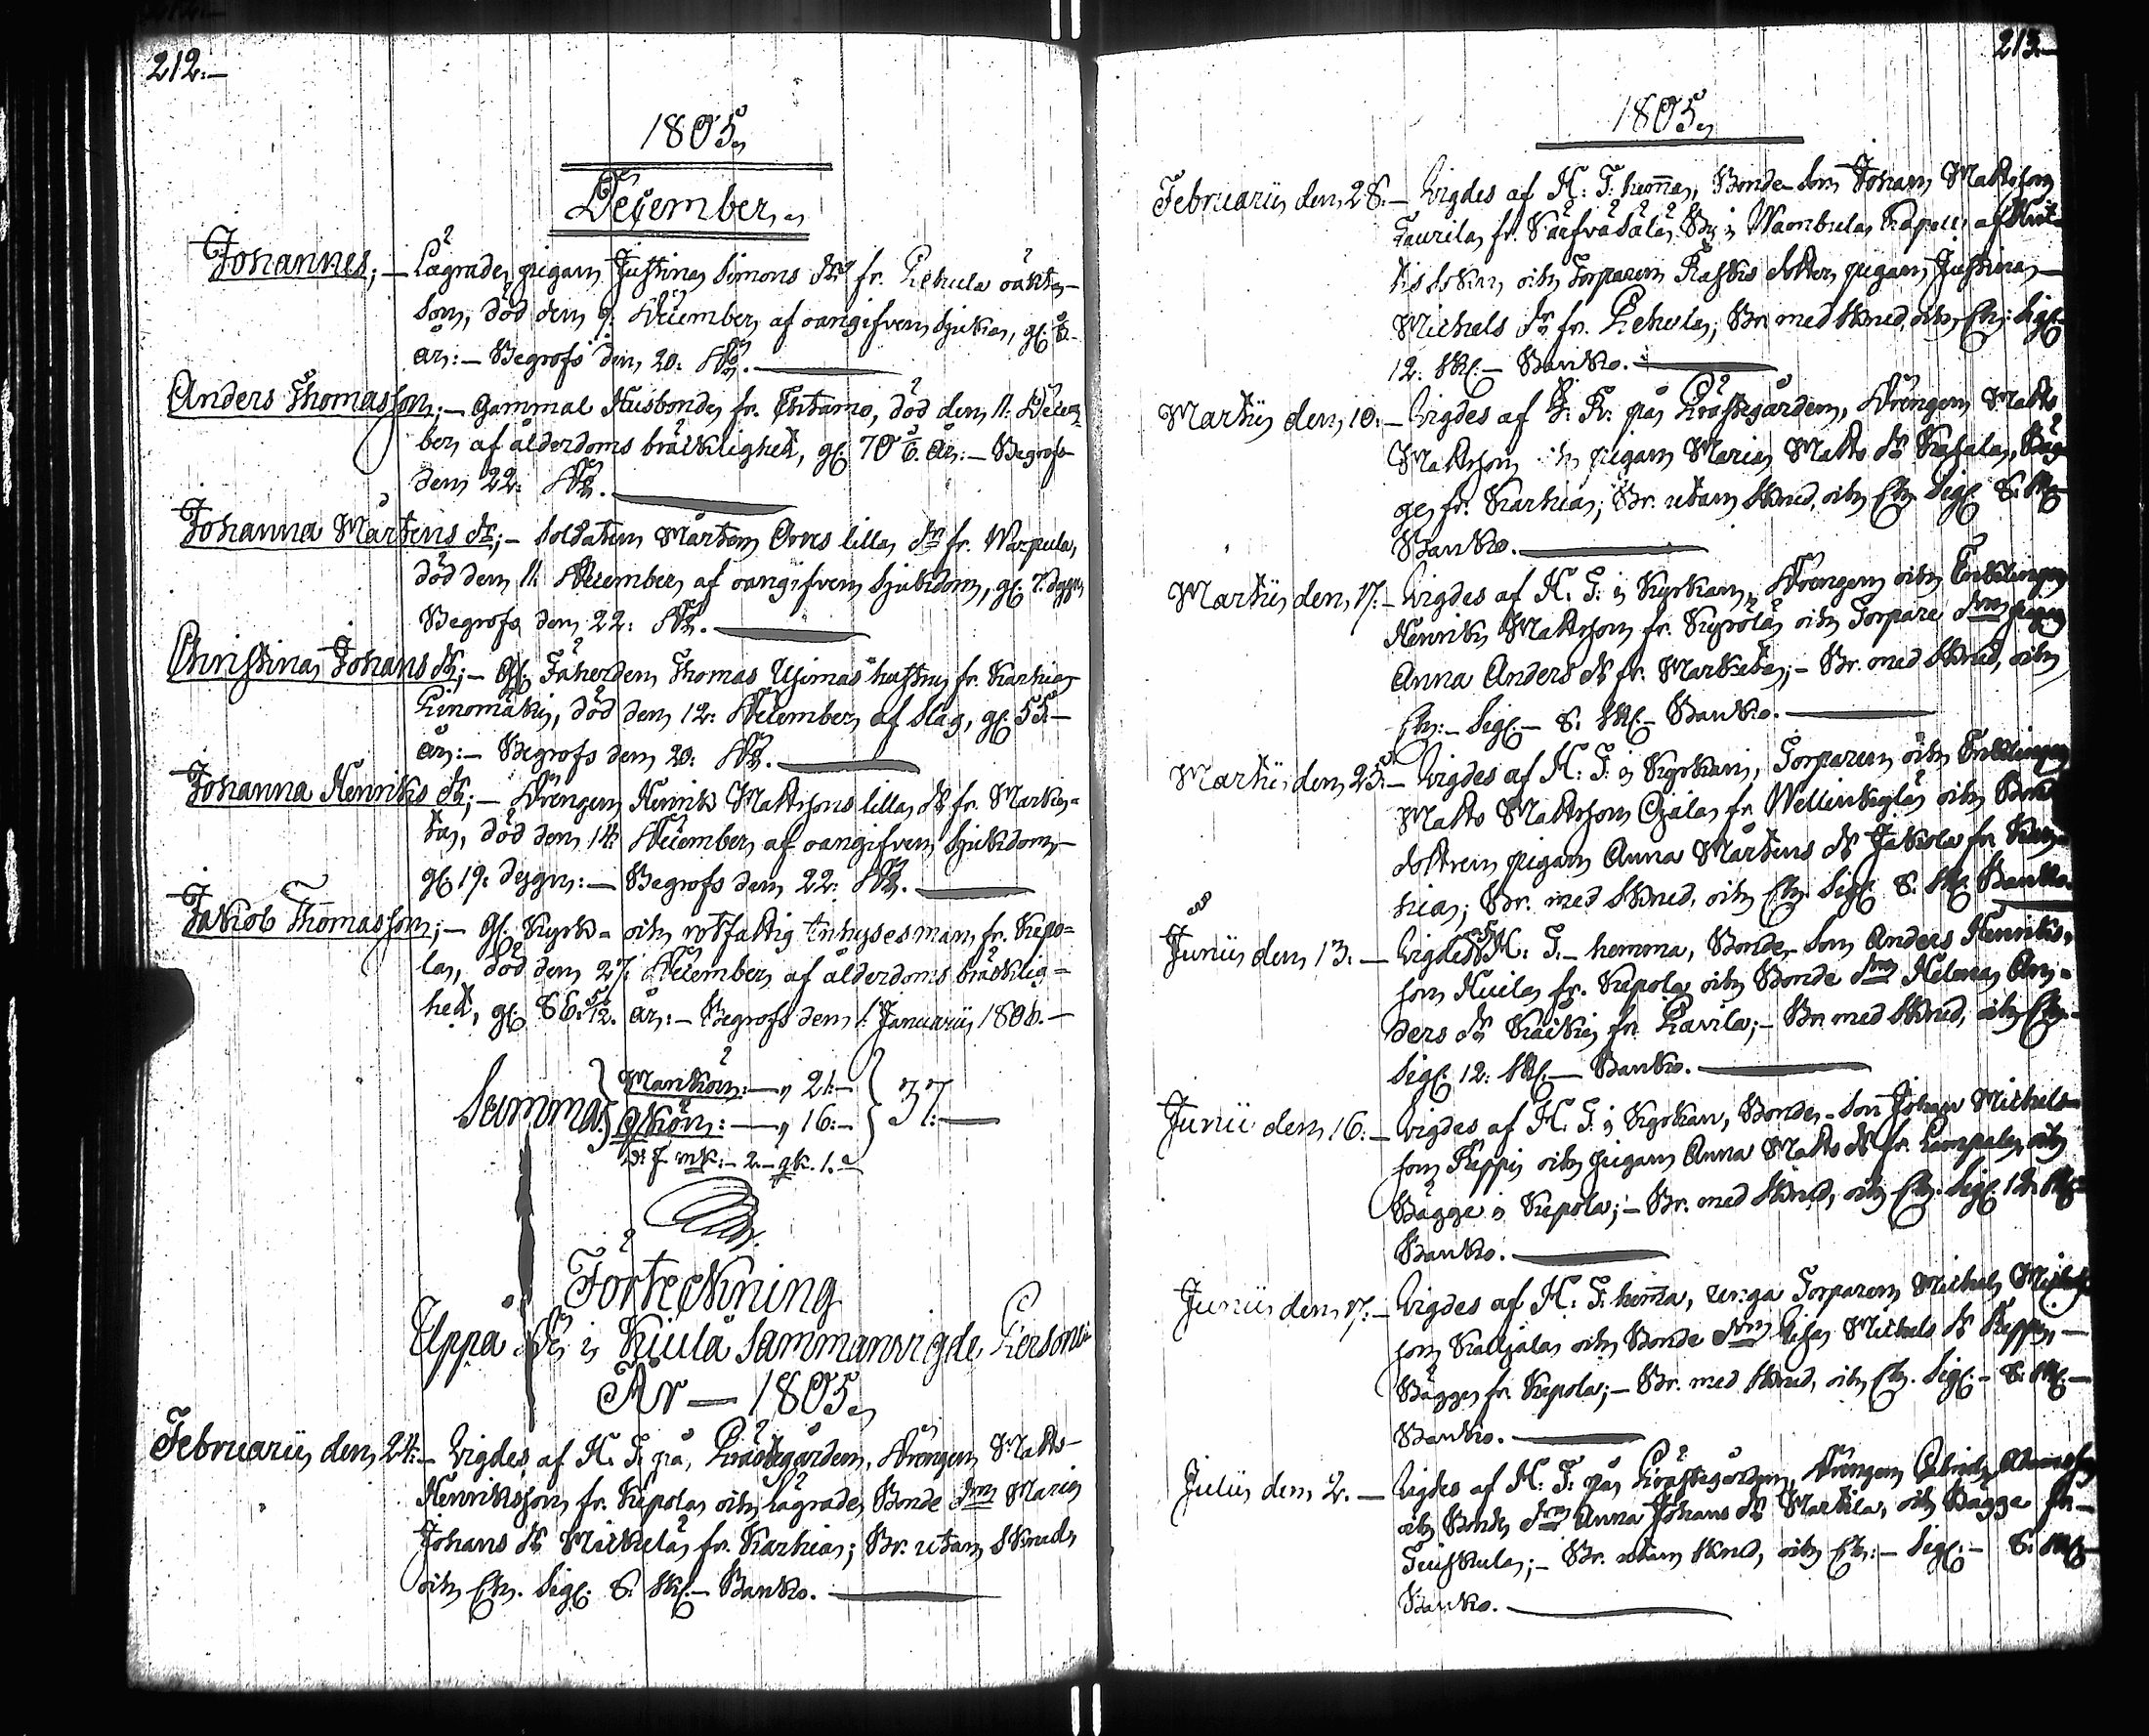 212.
1805.
December.
Johannes; — Lägrade pigan Justina Simons dr fr. Pehula oäkta
son, död den 9. December af oangifven sjukdom, gl.
år: — Begrofs den 20. Do.
Anders Thomasson; — Gammal Husbonde fr. Ehtamo, död den 11. Decem-
ber, af ålderdoms bräcklighet, gl. 70 år: — Begrofs
den 22. Do.
Johanna Mårtens dr; — Soldaten Mårten Orres lilla dr fr. Warpula,
död den 11. December, af oangifven sjukdom, gl. 7. dygn
Begrofs den 22. Do.
Christina Johans dr; — Gl. Fäherden Thomas hustru fr. Karhia
Linomäki, död den 12. December, af slag, gl. 55.
år: — Begrofs den 20. Do.
Johanna Henriks dr; — Drengen Henrik Mattssons lilla dr fr. Marke-
ta, död den 14. December, af oangifven sjukdom,
gl. 19. dygn: — Begrofs den 22. Do.
Jakob Thomasson; — Gl. Kyrko- och rotfattig Inhysesman fr. Kepo-
la, död den 27. December, af ålderdoms bräcklig-
het, gl. 86. 5/12. år: — Begrofs den 1. Januarii 1806. —
Summa Mankön: — 21: —
Qkön: — 16: — 37: —
D: f. mk: — 2. — qk. 1.
Förteckning
Uppå De i Kiula Sammanvigde Personer
År — 1805.
Februarii den 24. — Vigdes af H. T. på Prästegården, Drengen Matts
Henriksson fr. Kepola och lägrade Bonde dotren Maria
Johans dr Mickelä fr. Karhia; Br. utan Skrud,
och Chy. Sigl. 8. sk. — Banko.
213.
1805.
Februarii den 28. — Vigdes af H. T. hemma, Bonde-Son Johan Mattsson
Taurila fr. Särfväsälä By i Wambula Capell af Huit-
tis Sokn, och Torparen Raskis dotter, pigan Justina
Michels dr fr. Pehula; Br. med Skrud, och Chy. Sigl.
12. sk. — Banko.
Martii den 10. — Vigdes af på Prästegården, Drengen Matts
Mattsson och pigan Maria Matts dr Kafala, Bäg-
ge fr. Karhia; Br. utan Skrud, och Chy. Sigl. 8. sk.
Banko.
Martii den 17. — Vigdes af H. T. i Kyrkan, Drengen och Enklingen
Henrik Mattsson fr. Kyrölä och Torpare dotren pigan
Anna Anders dr fr. Marketa; — Br. med Skrud, och
Chy. — Sigl. — 8. sk. — Banko.
Martii den 25. — Vigdes af H. T. i Kyrkan, Torparen och Enklingen
Matts Mattsson Ojala fr. Wellinkylä och Bonde
dottren pigan Anna Mårtens dr Jakola fr. Kar-
hia; Br. med Skrud, och Chy. Sigl. 8. sk. Banko.
Junii den 13. — Vigdes af H. T. — hemma, Bonde-Son Anders Henriks-
son Huila fr. Kepola och Bonde dotren Helena An-
ders dr fr. Pavila; — Br. med Skrud, och Chy.
Sigl. 12. sk. — Banko.
Junii den 16. — Vigdes af H. T. i Kyrkan, Bonde-Son Johan Michels-
son Reppi och pigan Anna Matts dr fr. och
Bägge i Kepola; — Br. med Skrud, och Chy. Sigl. 12. sk.
Banko.
Junii den 17. — Vigdes af H. T. hemma, unga Torparen Michel Michels-
son Kalljala och Bonde dotren Lisa Michels dr Reppi, —
Bägge fr. Kepola; — Br. med Skrud, och Chy. Sigl. — 8. sk. —
Banko.
Julii den 2. — Vigdes af H. T. på Prästegården, Drengen Gabriel
och Bonde dotren Anna Johans dr Martila, och Bägge fr. —
Tuiskula; — Br. utan Skrud, och Chy. — Sigl. — 8. sk.
Banko.